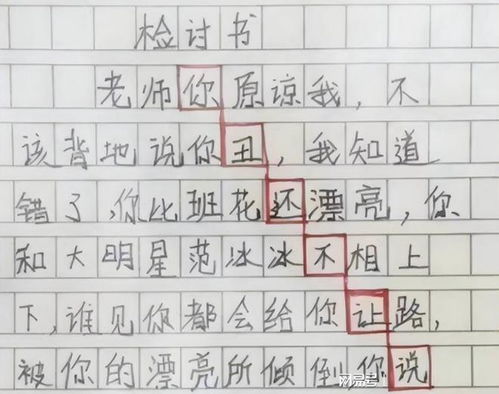 检讨书
老师你原谅我，不
该背地说你丑，我知道
错了，你比班花还漂亮，你
和大明星范冰冰不相上
下，谁见你都会给你让路，
被你的漂亮所倾倒你说
网易号